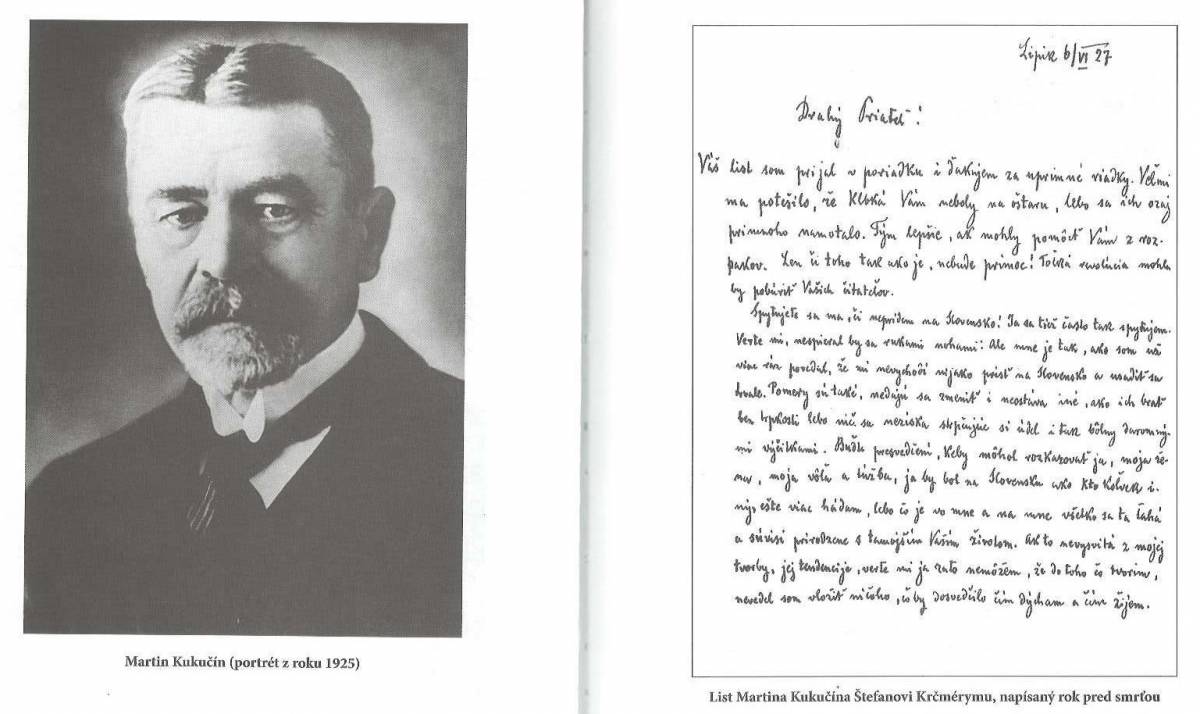 Martin Kukučín (portrét z roku 1925)
Lipik 6/VI 27
Drahý Priateľ!
Váš list som prijal v poriadku i ďakujem za úprimné riadky. Veľmi
ma potešilo, že Klbká Vám neboly na oštaru, lebo sa ich ozaj
primnoho namotalo. Tým lepšie, ak mohly pomôcť Vám z roz-
pakov. Len či toho tak ako je, nebude primoc! Točká revolúcia mohla
by pobúriť Vašich čitateľov.
Spytujete sa ma, či neprídem na Slovensko! Ja sa tiež často tak spytujem.
Verte mi, nespieral by sa rukami nohami: Ale mne je tak, ako som už
viac ráz povedal, že mi nevychodí nijako prísť na Slovensko a usadiť sa
trvale. Pomery sú také, nedajú sa zmeniť i neostáva iné, ako ich brať
bez trpkosti lebo nič sa nezíska strpčujúc si údel i tak bôlny daromný-
mi výčitkami. Buďte presvedčení, keby môhol rozkazovať ja, moja že-
na, moja vôľa a túžba, ja by bol na Slovensku ako kto koľvek i-
ný, ešte viac hádam, lebo čo je vo mne a na mne všetko sa ta ťahá
a súvisí prirodzene s tamojším Vaším životom. Ak to nevysvitá z mojej
tvorby, jej tendencije, verte mi ja zato nemôžem, že do toho čo tvorím,
nevedel som vložiť ničoho, čo by dosvedčilo čím dýcham a čím žijem.
List Martina Kukučína Štefanovi Krčmérymu, napísaný rok pred smrťou